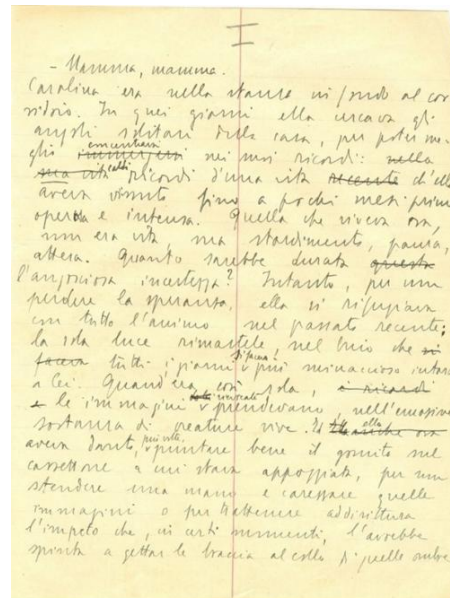 I
- Mamma, mamma.
Carolina era nella stanza in fondo al cor
ridoio. In quei giorni ella cercava gli
angoli solitari della casa, per poter me-
glio immergersi concentrarsi nei suoi ricordi: nella
sua vita ricordi d'una vita recente ch'ella
aveva vissuto fino a pochi mesi prima
operosa e intensa. Quella che viveva ora,
non era vita, ma stordimento, paura,
attesa. Quanto sarebbe durata questa
l'angosciosa incertezza? Intanto, per non
perdere la speranza, ella si rifugiava
con tutto l'animo nel passato recente:
la sola luce rimastale, nel buio che si
faceva tutti i giorni si faceva più minaccioso intorno
a lei. Quand'era così sola, i ricordi
e le immagini rievocate prendevano, nell'emozione
sostanza di creature vive. Ed ella anche ora
aveva dovuto, più volte, puntare bene il gomito sul
cassettone a cui stava appoggiata, per non
stendere una mano e carezzare quelle
immagini o per trattenere addirittura
l'impeto che, in certi momenti, l'avrebbe
spinta a gettar le braccia al collo di quelle ombre